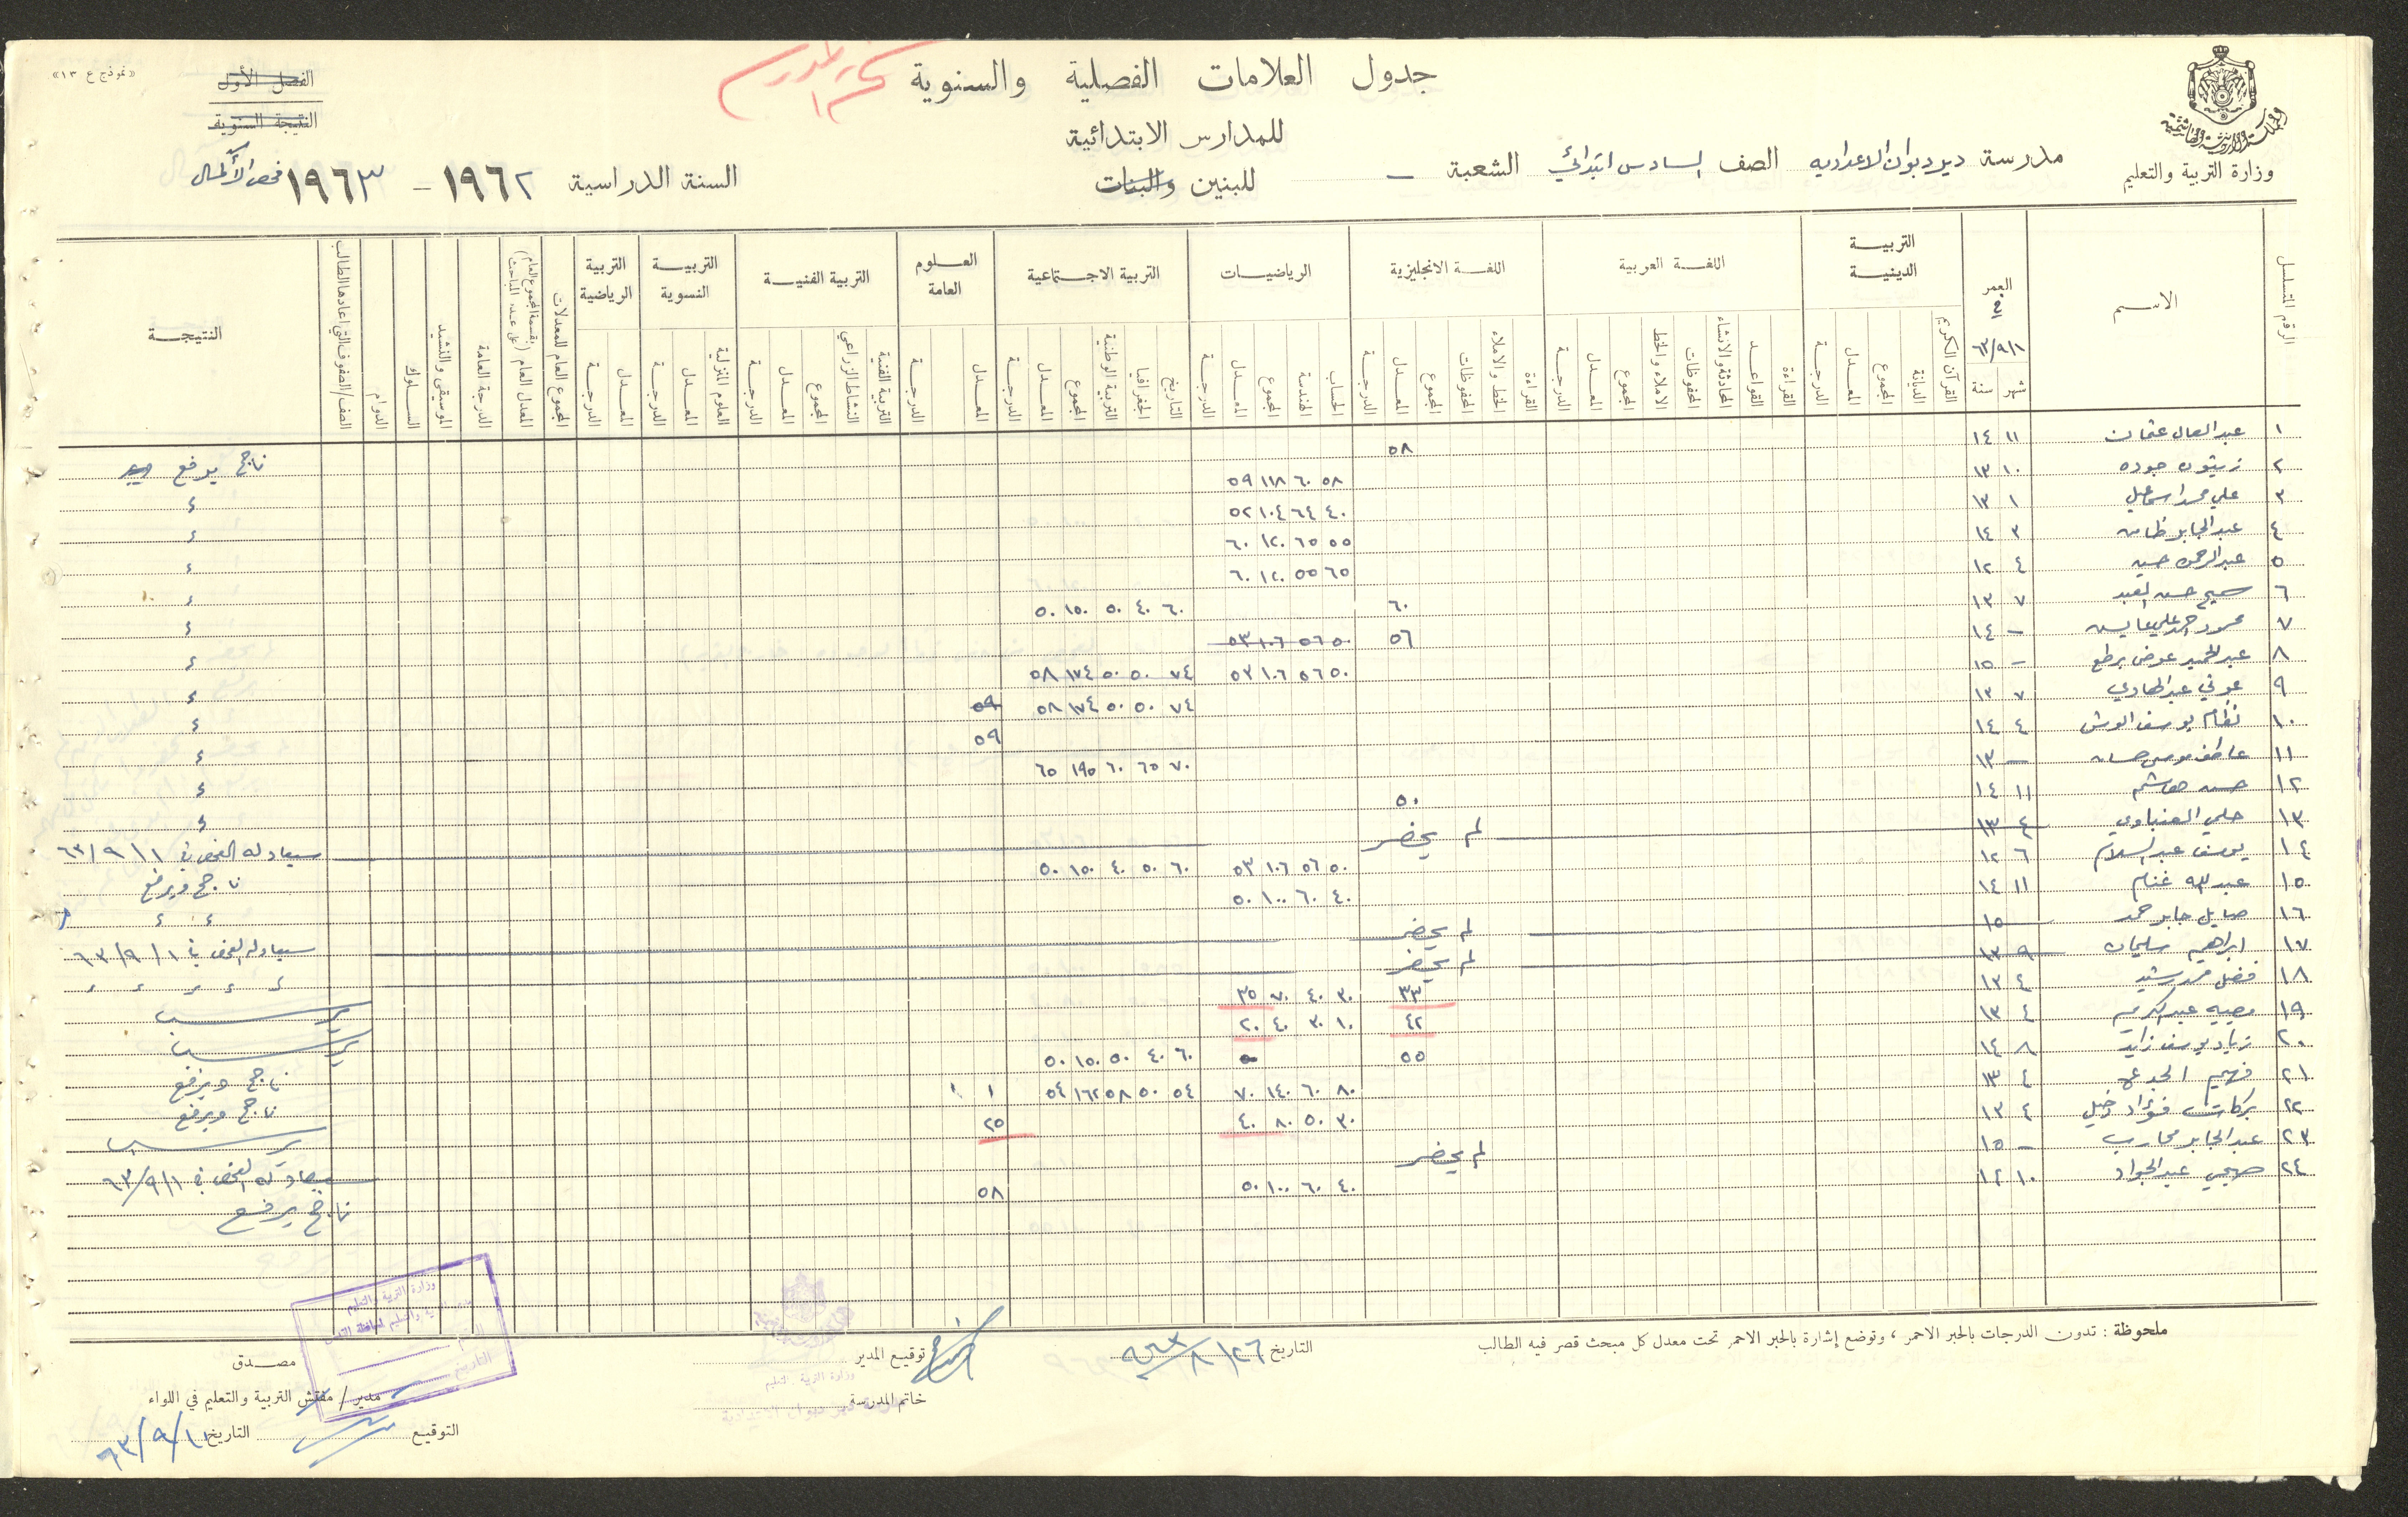 جدول العلامات الفصلية والسنوية
للمدارس الابتدائية
للبنين والبنات
«نموذج ع ١٣»
الفصل الأول
النتيجة السنوية
المملكة الأردنية الهاشمية
وزارة التربية والتعليم
مدرسة ديرديوان الاعدادية الصف السادس ابتدائي الشعبة –
السنة الدراسية ١٩٦٢ – ١٩٦٣ فحص الاكمال
الرقم المتسلسل
الاسم
العمر في ٦٣/٩/١
شهر سنة
التربية الدينية
القرآن الكريم الديانة المجموع المعدل الدرجة
اللغة العربية
القراءة القواعد المحادثة والانشاء المحفوظات الاملاء والخط المجموع المعدل الدرجة
اللغة الانجليزية
القراءة الخط والاملاء المحفوظات المجموع المعدل الدرجة
الرياضيات
الحساب الهندسة المجموع المعدل الدرجة
التربية الاجتماعية
التاريخ الجغرافيا التربية الوطنية المجموع المعدل الدرجة
العلوم العامة
المعدل الدرجة
التربية الفنية
التربية الفنية النشاط الزراعي المجموع المعدل الدرجة
التربية النسوية
العلوم المنزلية المعدل الدرجة
التربية الرياضية
المعدل الدرجة
المجموع العام للمعدلات
المعدل العام (بقسمة المجموع العام على عدد المباحث)
الدرجة العامة
الموسيقى والنشيد
السلوك
الدوام
الصف/الصفوف التي اعادها الطالب
النتيجة
١ عبد العال عثمان ١١ ١٤ ٥٨ ناجح يرفع
٢ زيتون جوده ١٠ ١٣ ٥٨ ٦٠ ١١٨ ٥٩ ٤
٣ علي محمد اسماعيل ١ ١٣ ٤٠ ٦٤ ١٠٤ ٥٢ ٤
٤ عبد الجابر ٣ ١٤ ٥٥ ٦٥ ١٢٠ ٦٠ ٤
٥ عبد الرحمن حسين ٤ ١٢ ٦٥ ٥٥ ١٢٠ ٦٠ ٤
٦ سميح حسن العبد ٧ ١٣ ٦٠ ٦٠ ٤٠ ٥٠ ١٥٠ ٥٠ ٤
٧ محمود احمد علي – ١٤ ٥٦ ٥٠ ٥٦ ١٠٦ ٥٣ ٤
٨ عبد الحميد عوض – ١٥ ٥٠ ٥٦ ١٠٦ ٥٣ ٧٤ ٥٠ ٥٠ ١٧٤ ٥٨ ٤
٩ عوني عبد الهادي ٧ ١٣ ٧٤ ٥٠ ٥٠ ١٧٤ ٥٨ ٥٩ ٤
١٠ نظام يوسف ٤ ١٤ ٥٩ ٤
١١ عاطف موسى حسان – ١٣ ٧٠ ٦٥ ٦٠ ١٩٥ ٦٥ ٤
١٢ حسن هاشم ١١ ١٤ ٥٠ ٤
١٣ حلمي العنباوي ٤ ١٣ لم يحضر سيعاد له الفحص في ٦٣/٩/١
١٤ يوسف عبد السلام ٦ ١٢ ٥٠ ٥٦ ١٠٦ ٥٣ ٦٠ ٥٠ ٤٠ ١٥٠ ٥٠ ناجح ويرفع
١٥ عبد الله غنام ١١ ١٤ ٤٠ ٦٠ ١٠٠ ٥٠ ٤ ٤
١٦ صايل جابر حمد ١٥ لم يحضر سيعاد له الفحص في ٦٣/٩/١
١٧ ابراهيم سليمان ٩ ١٣ لم يحضر ٤ ٤ ٤ ٤ ٤
١٨ فضل محمد رشيد ٤ ١٣ ٣٣ ٣٠ ٤٠ ٧٠ ٣٥ يرسب
١٩ عبد الكريم ٤ ١٣ ٤٢ ١٠ ٣٠ ٤٠ ٢٠ يرسب
٢٠ زياد يوسف زايد ٨ ١٤ ٥٥ ٦٠ ٤٠ ٥٠ ١٥٠ ٥٠ ناجح ويرفع
٢١ فهيم الجدع ٤ ١٣ ٨٠ ٦٠ ١٤٠ ٧٠ ٥٤ ٥٠ ٥٨ ١٦٢ ٥٤ ١ ناجح ويرفع
٢٢ بركات فؤاد ٤ ١٣ ٣٠ ٥٠ ٨٠ ٤٠ ٢٥ يرسب
٢٣ عبد الجابر محارب – ١٥ لم يحضر سيعاد له الفحص في ٦٣/٩/١
٢٤ صبحي عبد الجواد ١٠ ١٢ ٤٠ ٦٠ ١٠٠ ٥٠ ٥٨ ناجح يرفع
ملحوظة : تدون الدرجات بالحبر الاحمر ، وتوضع إشارة بالحبر الاحمر تحت معدل كل مبحث قصر فيه الطالب
التاريخ ٢٦/٨/٩٦٣
توقيع المدير
خاتم المدرسة
وزارة التربية والتعليم
مصدق
مدير/مفتش التربية والتعليم في اللواء
التوقيع التاريخ ٦٣/٩/١١
وزارة التربية والتعليم
الرقم
التاريخ